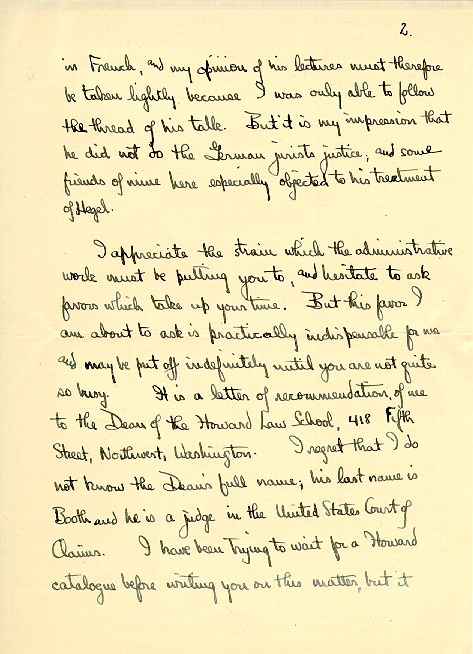 2.
in French, and my opinion of his lectures must therefore
be taken lightly because I was only able to follow
the thread of his talk. But it is my impression that
he did not do the German jurists justice; and some
friends of mine here especially objected to his treatment
of Hegel.
I appreciate the strain which the administrative
work must be putting you to, and hesitate to ask
favors which take up your time. But this favor I
am about to ask is practically indispensable for me
and may be put off indefinitely until you are not quite
so busy. It is a letter of recommendation, of me
to the Dean of the Howard Law School, 418 Fifth
Street, Northwest, Washington. I regret that I do
not know the Dean's full name; his last name is
Booth and he is a judge in the United States Court of
Claims. I have been trying to wait for a Howard
catalogue before writing you on this matter, but it